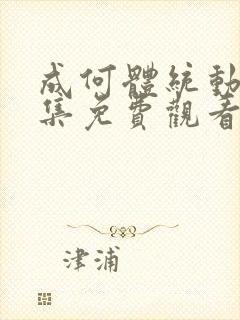 成何體統動
集免費觀看
津浦